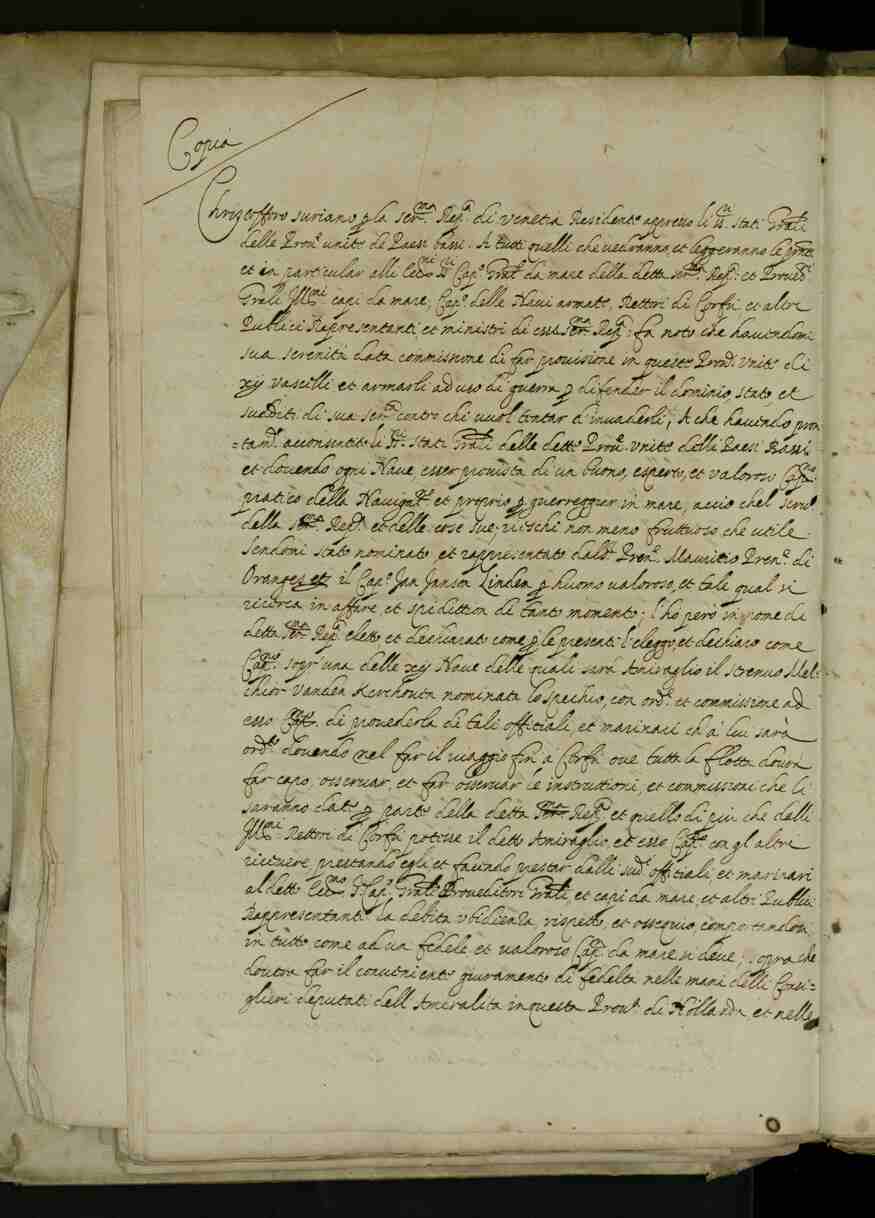 Copia
Christofforo suriano p la Ser.ma Rep.ca di Venetia Residente appresso li ss.ri stati Gn̄li
delle Prou.e unite de Paesi bassi. A tutti quelli che vedranno, et leggeranno le p̄nti
et in particular alli Ecc.mi ss.ri Cap.ni Gn̄li da mare della detta ser.ma Rep.ca et Proued.ri
Gn̄li Ill.mi capi da mare, Cap.ni delle Naui armate, Rettori di Corfù, et altri
Publici Rapresentanti, et ministri de essa Ser.ma Rep.ca fa noto che hauendomi
sua serenità data commissione di far prouisione in queste Prou.e Unite di
xij vascelli et armarli ad uso di guerra p difender il dominio, stato et
sudditi di sua Ser.tà contro chi vuol tentar d'inuaderli; A che hauendo pron
=tam.te acconsentito li ss.ri stati Gn̄li delle dette Prou.e unite delli Paesi Bassi
et douendo ogni Naue, esser prouista di un buono, esperto, et valoroso Cap.no
pratico della Nauigat.ne et proprio p guerreggiar in mare, acciò chel seru.o
della Ser.ma Rep.ca et delle cose sue, rieschi non meno fruttuoso che utile.
Sendomi stato nominato, et rappresentato dal s.r Pren.e Mauritio Pren.e di
Oranges etc il Cap.o Jan Janson Linden p huomo ualoroso, et tale qual si
ricerca in affare, et spedittion di tanto momento; l'ho però in nome di
detta Ser.ma Rep.ca eletto et dechiarato come p le presenti l'eleggo, et dechiaro come
Cap.no sopr'una delle xij Naue delle quali sarà Amiraglio il strenuo Mel-
chior Vanden Kerchoutn nominata lo spechio, con ord.e et commissione ad
esso Cap.no di prouederla di tali offitiali, et marinari ch'à lui sarà
ord.to douendo nel far il uiaggio fin à Corfù oue tutta la flotta dourà
far capo, osseruar, et far osseruar le instruttioni, et commissioni che li
saranno date p parte della detta Ser.ma Rep.ca et quello di più che dalli
Ill.mi Rettori di Corfù potesse il detto Amiraglio, et esso Cap.no con gl'altri
riceuere, prestando egli, et facendo prestar dalli sud.ti offitiali, et marinari
al detto Ecc.mo s.r Cap.o Gn̄le Proueditori Gn̄li, et capi da mare, et altri Publici
Rappresentanti la debita ubidienza, rispetto, et ossequio, comportandosi
in tutto come ad un fedele et valoroso Cap.no da mare si deue; sopra che
dourà far il conueniente giuramento di fedeltà nelle mani delli Consi=
glieri deputati dell'Amiralità in questa Prou.a di Hollanda, et nelle